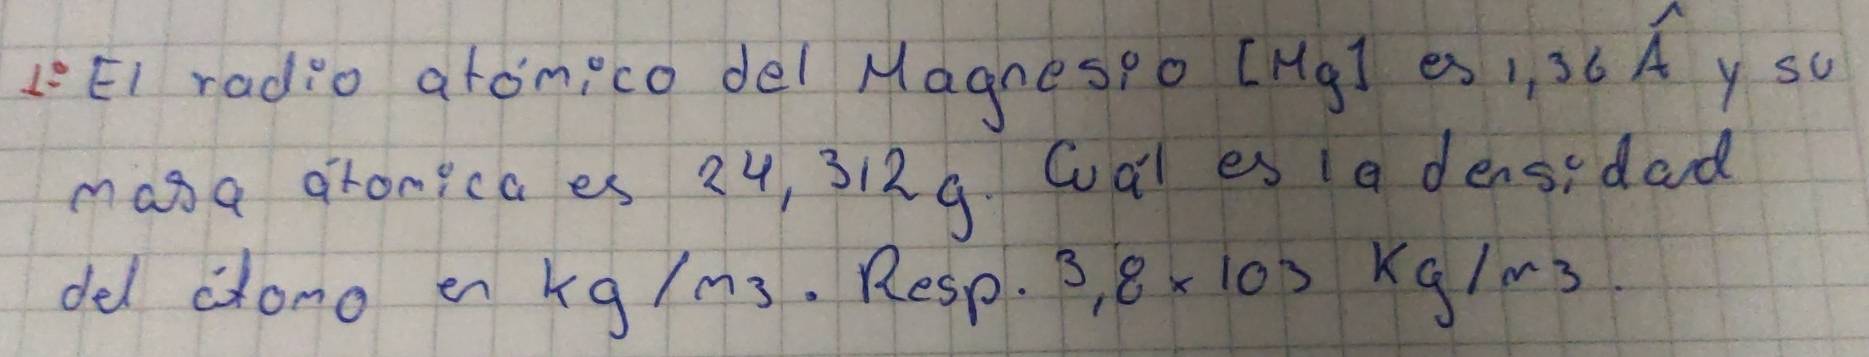 1º El radio atómico del Magnesio [Mg] es 1,36 Â y su
masa átomica es 24,312g. Cuál es la densidad
del átomo en kg/m3. Resp. 3,8 x 103 Kg/m3.